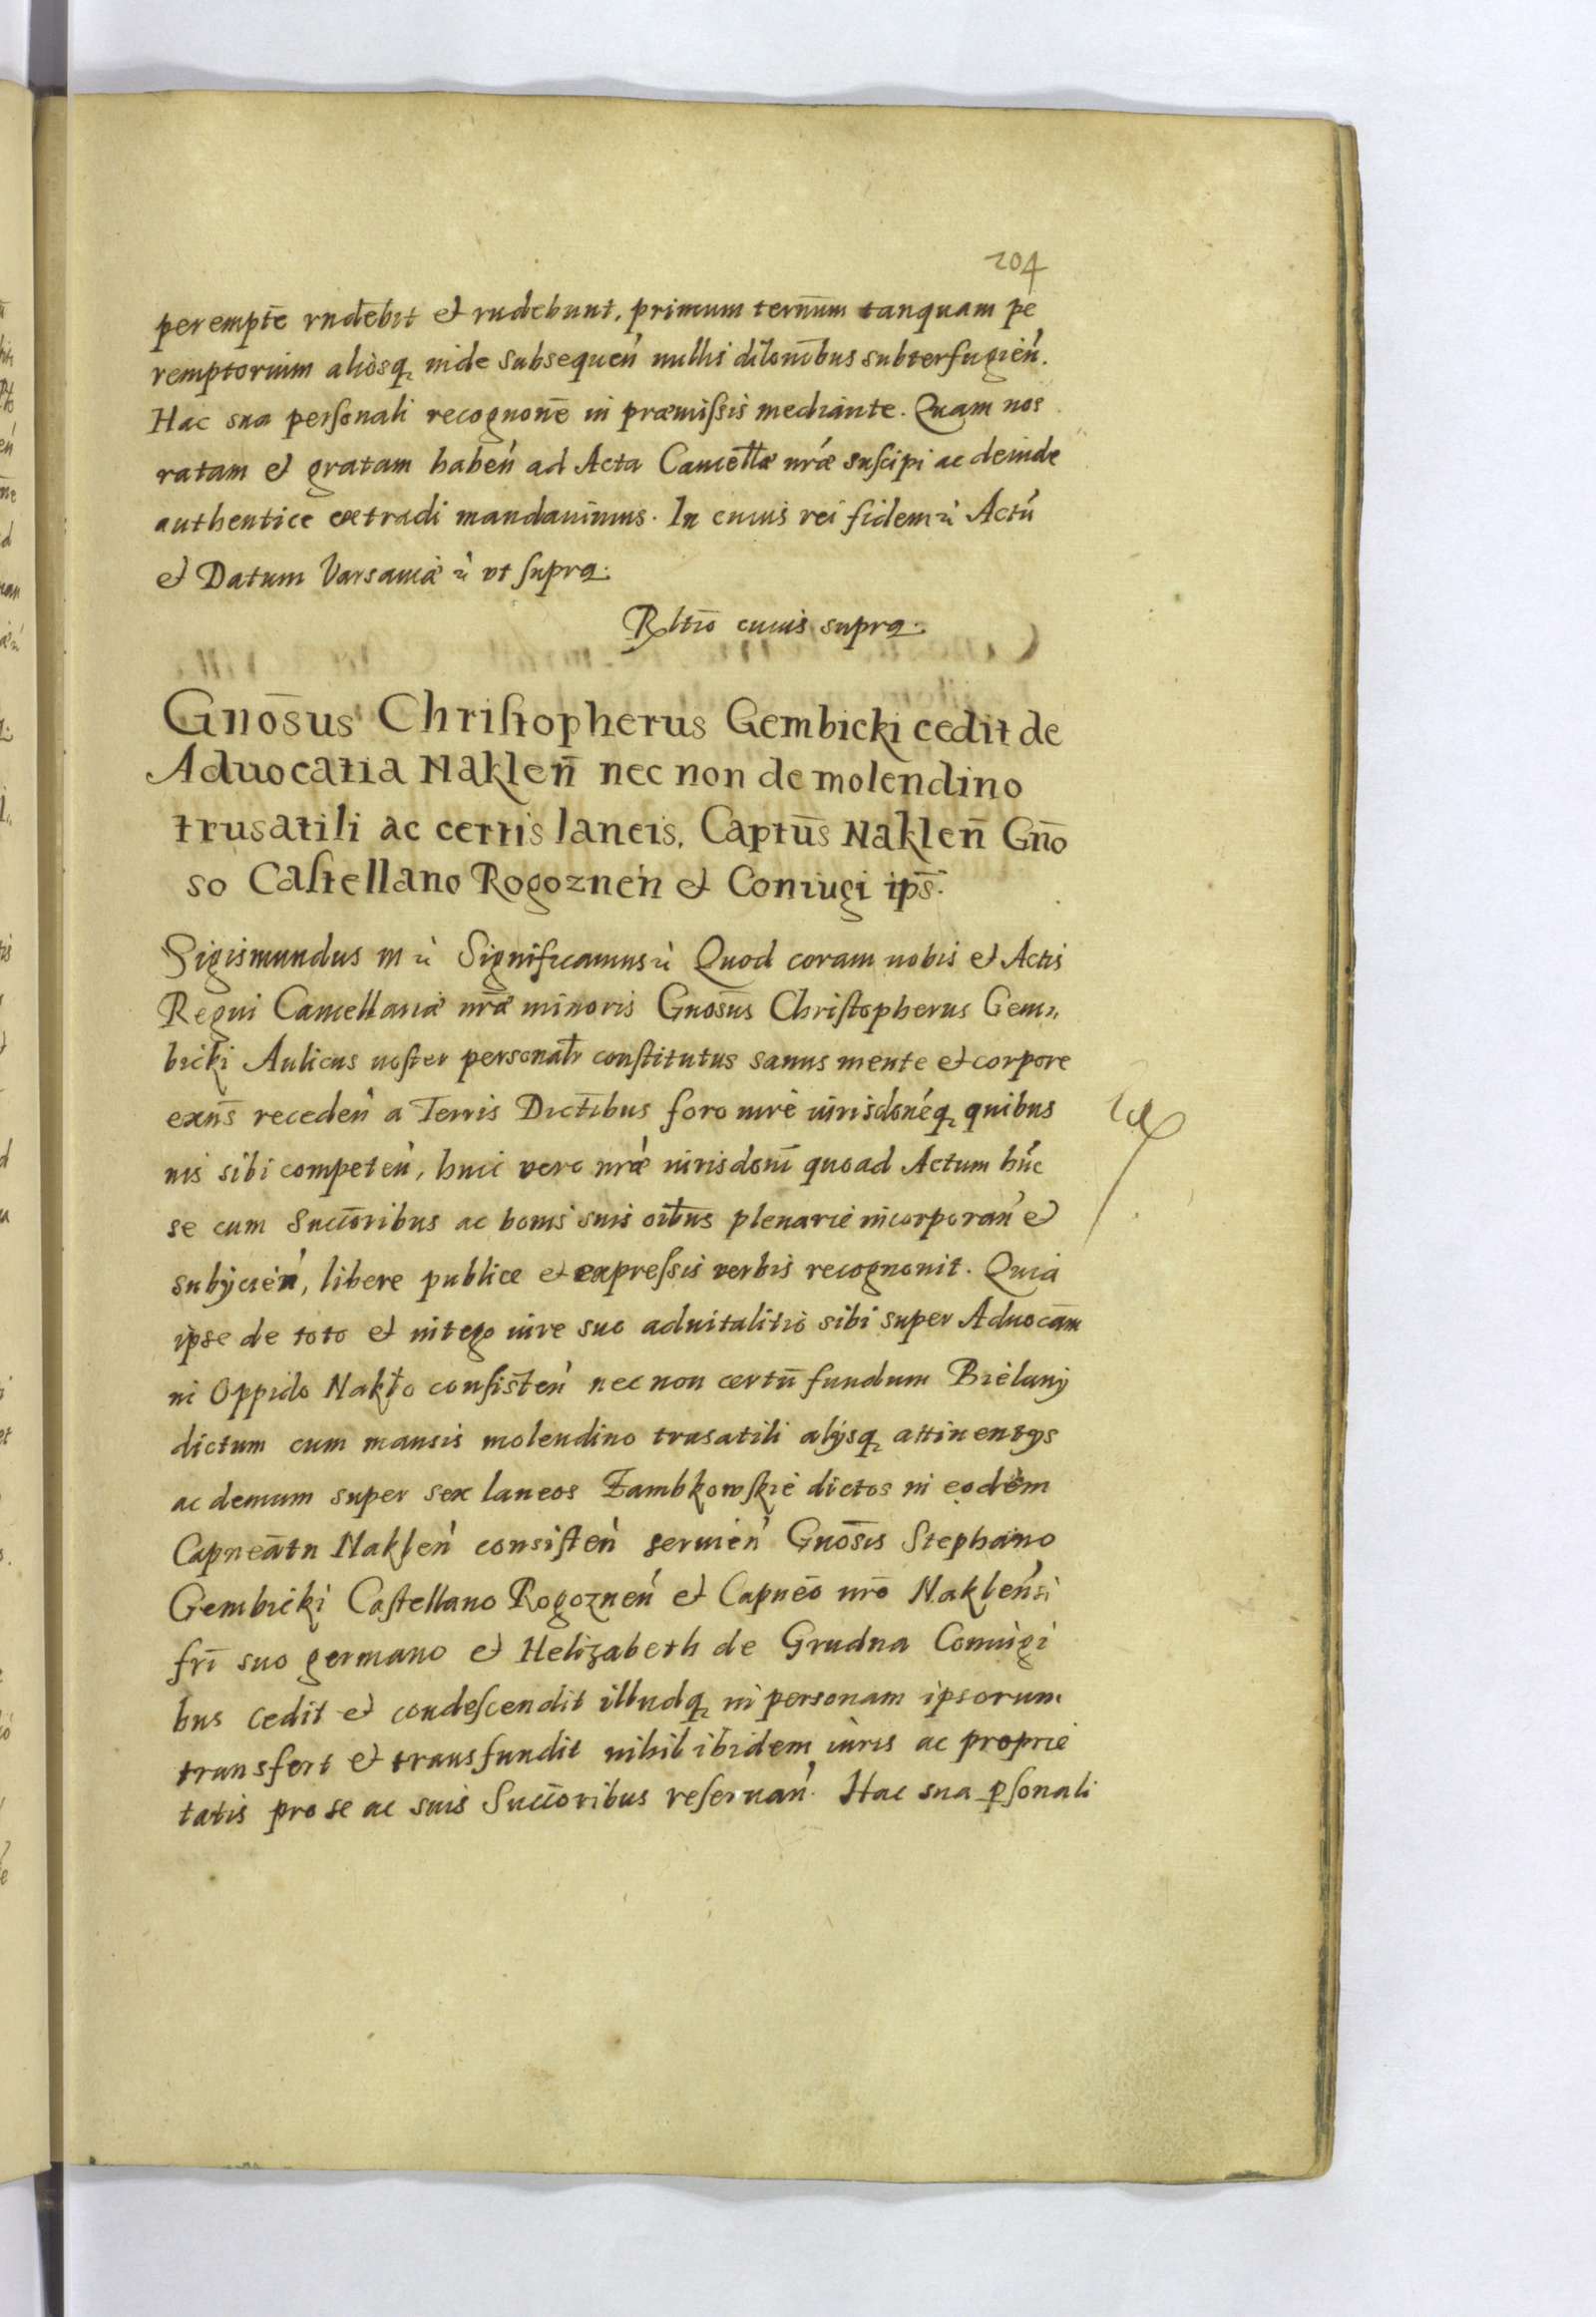 204
perempte͞ rnde͞bit et rndebunt, primum term̄um tanquam pe
remptorium aliosq̨ inde subsequeń nullis dilonībus subterfugień.
Hac sua perſonali recognone͞ in præmiſsis mediante. Quam nos
ratam et gratam habeń ad Acta Cancellæ nr̄æ suſcipi ac deinde
authentice extradi mandauimus. In cuius rei fidem ꝛ̀ Actú
et Datum Varsauiæ ꝛ̀ vt ſupra.
Rltīo cuius supra.
Gnōsus Chriſtopherus Gembicki cedit de
Aduocatia Naklen̄ nec non de molendino
trusatili ac certis laneis, Captūs Naklen̄ Gnō
so Caſtellano Rogoznéń et Coniugi ips̄.
Sigismundus m ꝛ̀ Significamus ꝛ̀ Quod coram nobis et Actis
Regni Cancellariæ nr̄æ minoris Gnosūs Chriſtopherus Gem„
bicki Aulicus noſter personalr̄ conſtitutus sanus mente et corpore
exn̄s recedeń a Terris Dictībus foro iure iurisdonéq̨ quibus
uis sibi competeń, huic vero nr̄æ iurisdonī quoad Actum húc
se cum Succōribus ac bonis suis oībus plenarie incorporań et
subÿcień, libere publice et expreſsis verbis recognouit. Quia
ipse de toto et intego iure suo aduitalitio sibi super Aduocām
in Oppido Nakło conſiſteń nec non certū fundum Bielanÿ
dictum cum mansis molendino trusatili alÿsq̨ attinentÿs
ac demum super sex laneos Zambkowſkie dictos in eodem
Capneātu Nakleń consiſteń seruień Gnosīs Stephano
Gembicki Caſtellano Rogozneń et Capneō nrō Nakleńsi
frī suo germano et Helizabeth de Grudna Coniugi
bus cedit et condeſcendit illudq̨ in personam ipsorum
transfert et transfundit nihil ibidem iuris ac proprie
tatis pro se ac suis Succōribus reſeruań. Hac sua pſonali